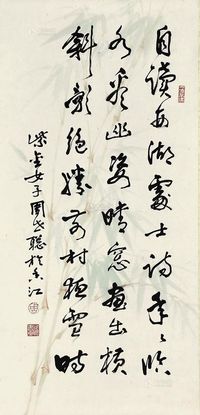 自讀西湖處士詩年〻臨
水看幽姿晴窓畫出橫
斜影絕勝前村夜雪時
紫金女子周世聰於香江